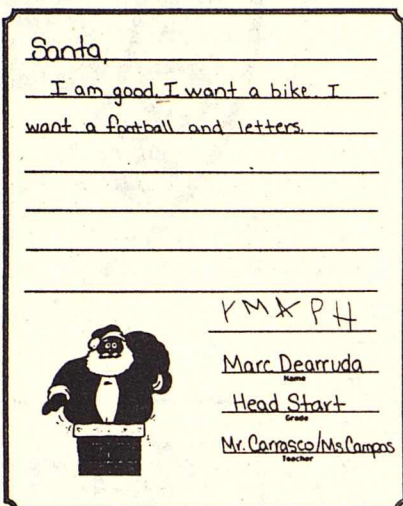 Santa,
I am good. I want a bike. I
want a football and letters.
YMAPH
Marc Dearruda
Name
Head Start
Grade
Mr. Carrasco/Ms Campos
Teacher